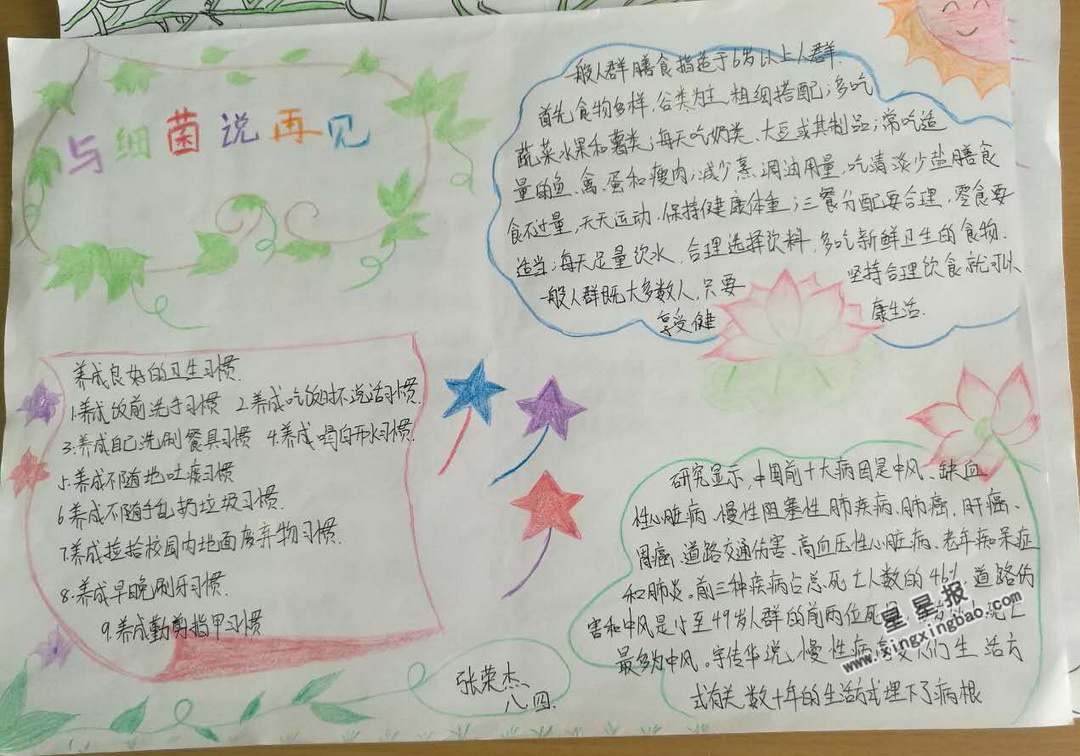 与细菌说再见
一般人群膳食指适于6岁以上人群.
首先食物多样,谷类为主,粗细搭配;多吃
蔬菜水果和薯类;每天吃奶类、大豆或其制品;常吃适
量的鱼、禽、蛋和瘦肉;减少烹调油用量,吃清淡少盐膳食
食不过量,天天运动,保持健康体重;三餐分配要合理,零食要
适当;每天足量饮水,合理选择饮料,多吃新鲜卫生的食物.
一般人群既大多数人,只要坚持合理饮食就可以
享受健康生活.
养成良好的卫生习惯.
1.养成饭前洗手习惯 2.养成吃饭时不说话习惯.
3.养成自己洗刷餐具习惯 4.养成喝白开水习惯.
5.养成不随地吐痰习惯
6.养成不随手乱扔垃圾习惯.
7.养成捡拾校园内地面废弃物习惯.
8.养成早晚刷牙习惯
9.养成勤剪指甲习惯
研究显示,中国前十大病因是中风、缺血
性心脏病、慢性阻塞性肺疾病、肺癌、肝癌、
胃癌、道路交通伤害、高血压性心脏病、老年痴呆症
和肺炎。前三种疾病占总死亡人数的46%,道路伤
害和中风是15至49岁人群的前两位死
死亡
最多为中风。宇传华说,慢性病 人们生活方
式有关,数十年的生活方式埋下了病根
张荣杰
八四.
星星报
www.xingxingbao.com